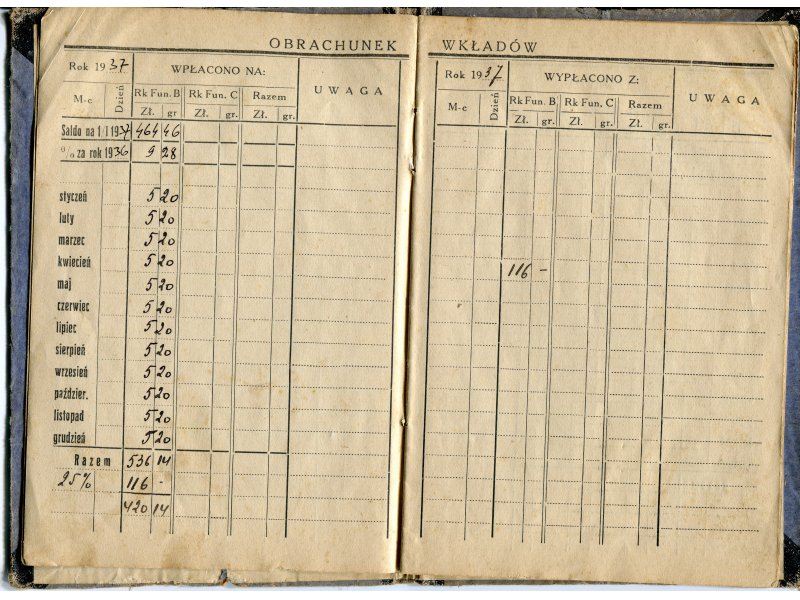 OBRACHUNEK WKŁADÓW
Rok 1937 WPŁACONO NA: UWAGA
M-c Dzień Rk Fun. B Rk Fun. C Razem
Zł. gr Zł. gr. Zł. gr.
Saldo na 1/I 1937 464 46
% za rok 1936 9 28
styczeń 5 20
luty 5 20
marzec 5 20
kwiecień 5 20
maj 5 20
czerwiec 5 20
lipiec 5 20
sierpień 5 20
wrzesień 5 20
paździer. 5 20
listopad 5 20
grudzień 5 20
Razem 536 14
25% 116 -
420 14
Rok 1937 WYPŁACONO Z: UWAGA
M-c Dzień Rk Fun. B Rk Fun. C Razem
Zł. gr. Zł. gr. Zł. gr.
116 -